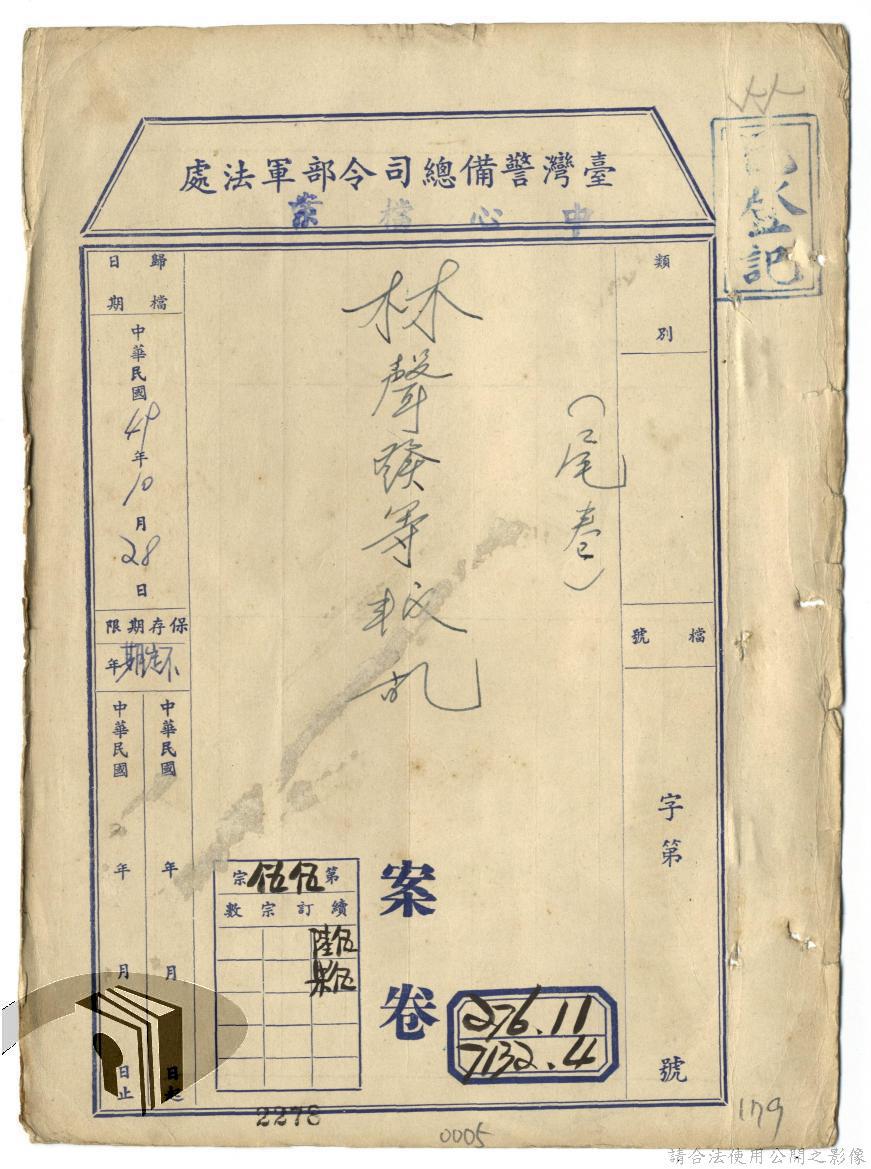 臺灣警備總司令部軍法處
中心檔案
已登記
類別
檔號
字第
號
(尾卷)
林聲發等叛乱
案卷
歸檔日期
中華民國49年10月28日
保存期限
不定期年
中華民國 年 月 日起
中華民國 年 月 日止
第伍伍宗
續訂宗數
伍陸
伍柒
276.11
7132.4
2278
0005
179
請合法使用公開之影像